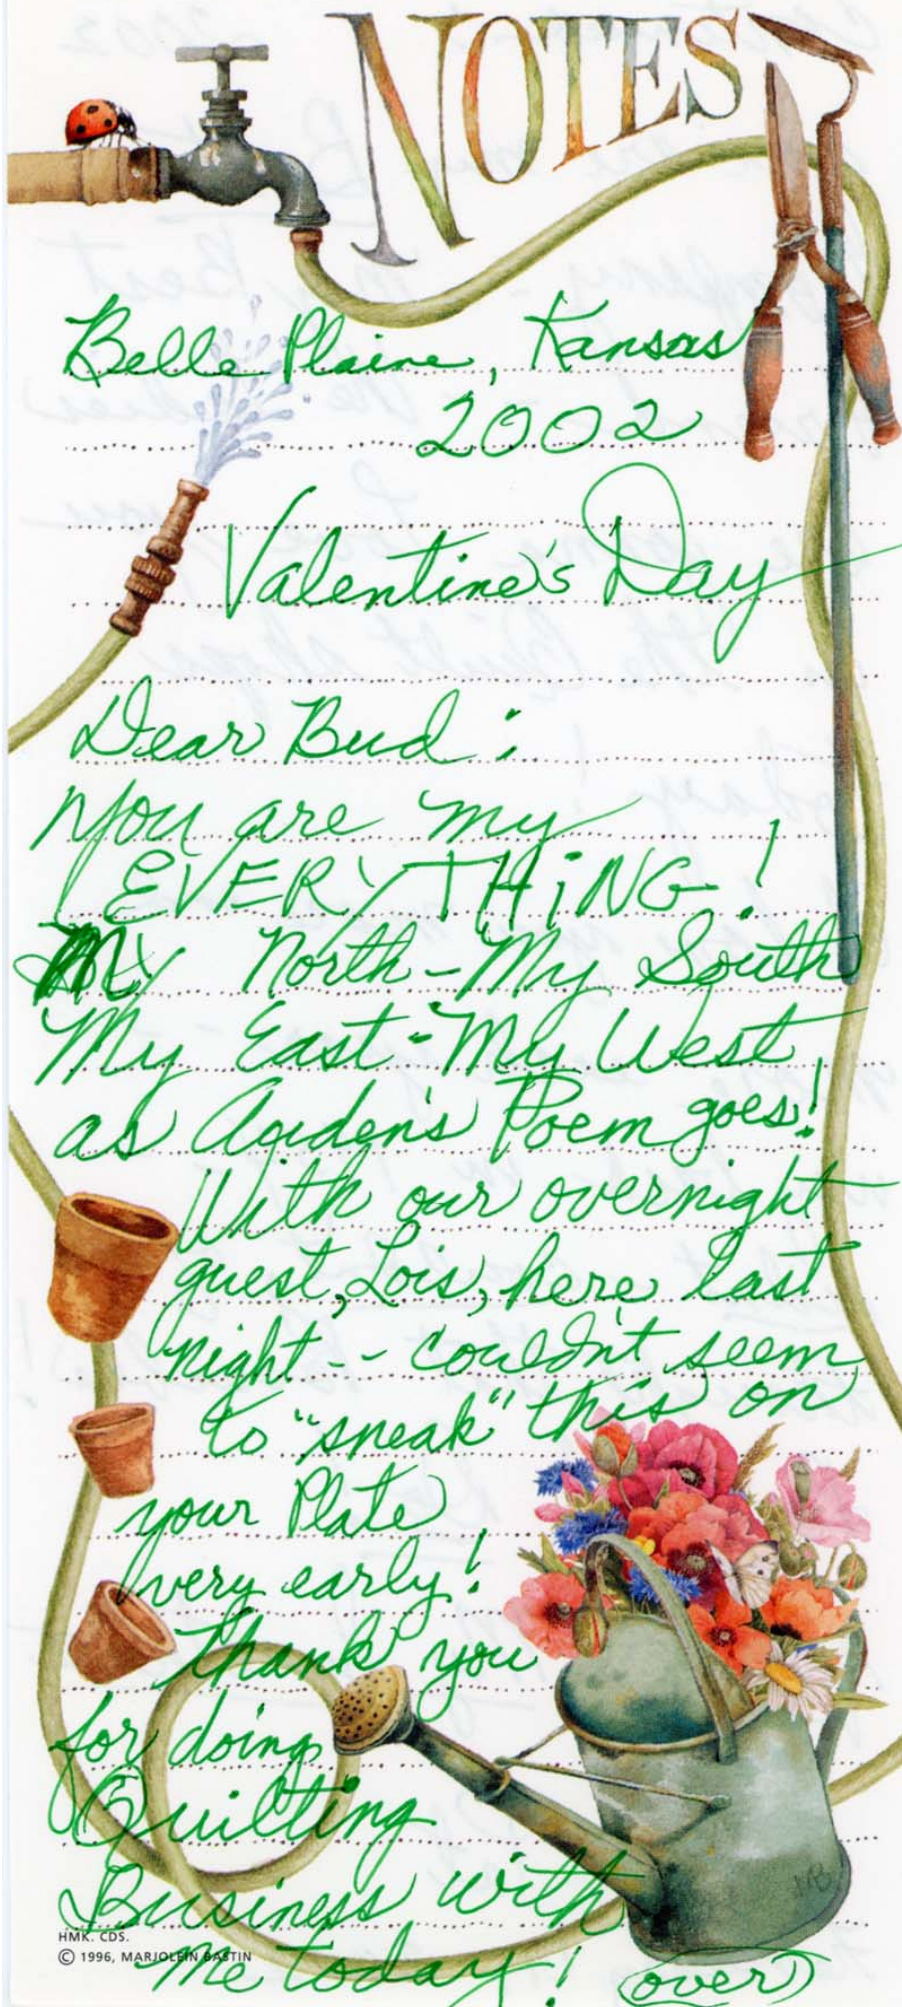 NOTES
Belle Plaine, Kansas
2002
Valentine's Day
Dear Bud:
You are my
EVERYTHING!
My North - My South
My East - My West
as Auden's Poem goes!
With our overnight
guest, Lois, here last
night -- couldn't seem
to "sneak" this on
your Plate
very early!
Thank you
for doing
Quilting
Business with
me today! (over)
HMK. CDS.
© 1996, MARJOLEIN BASTIN
MB